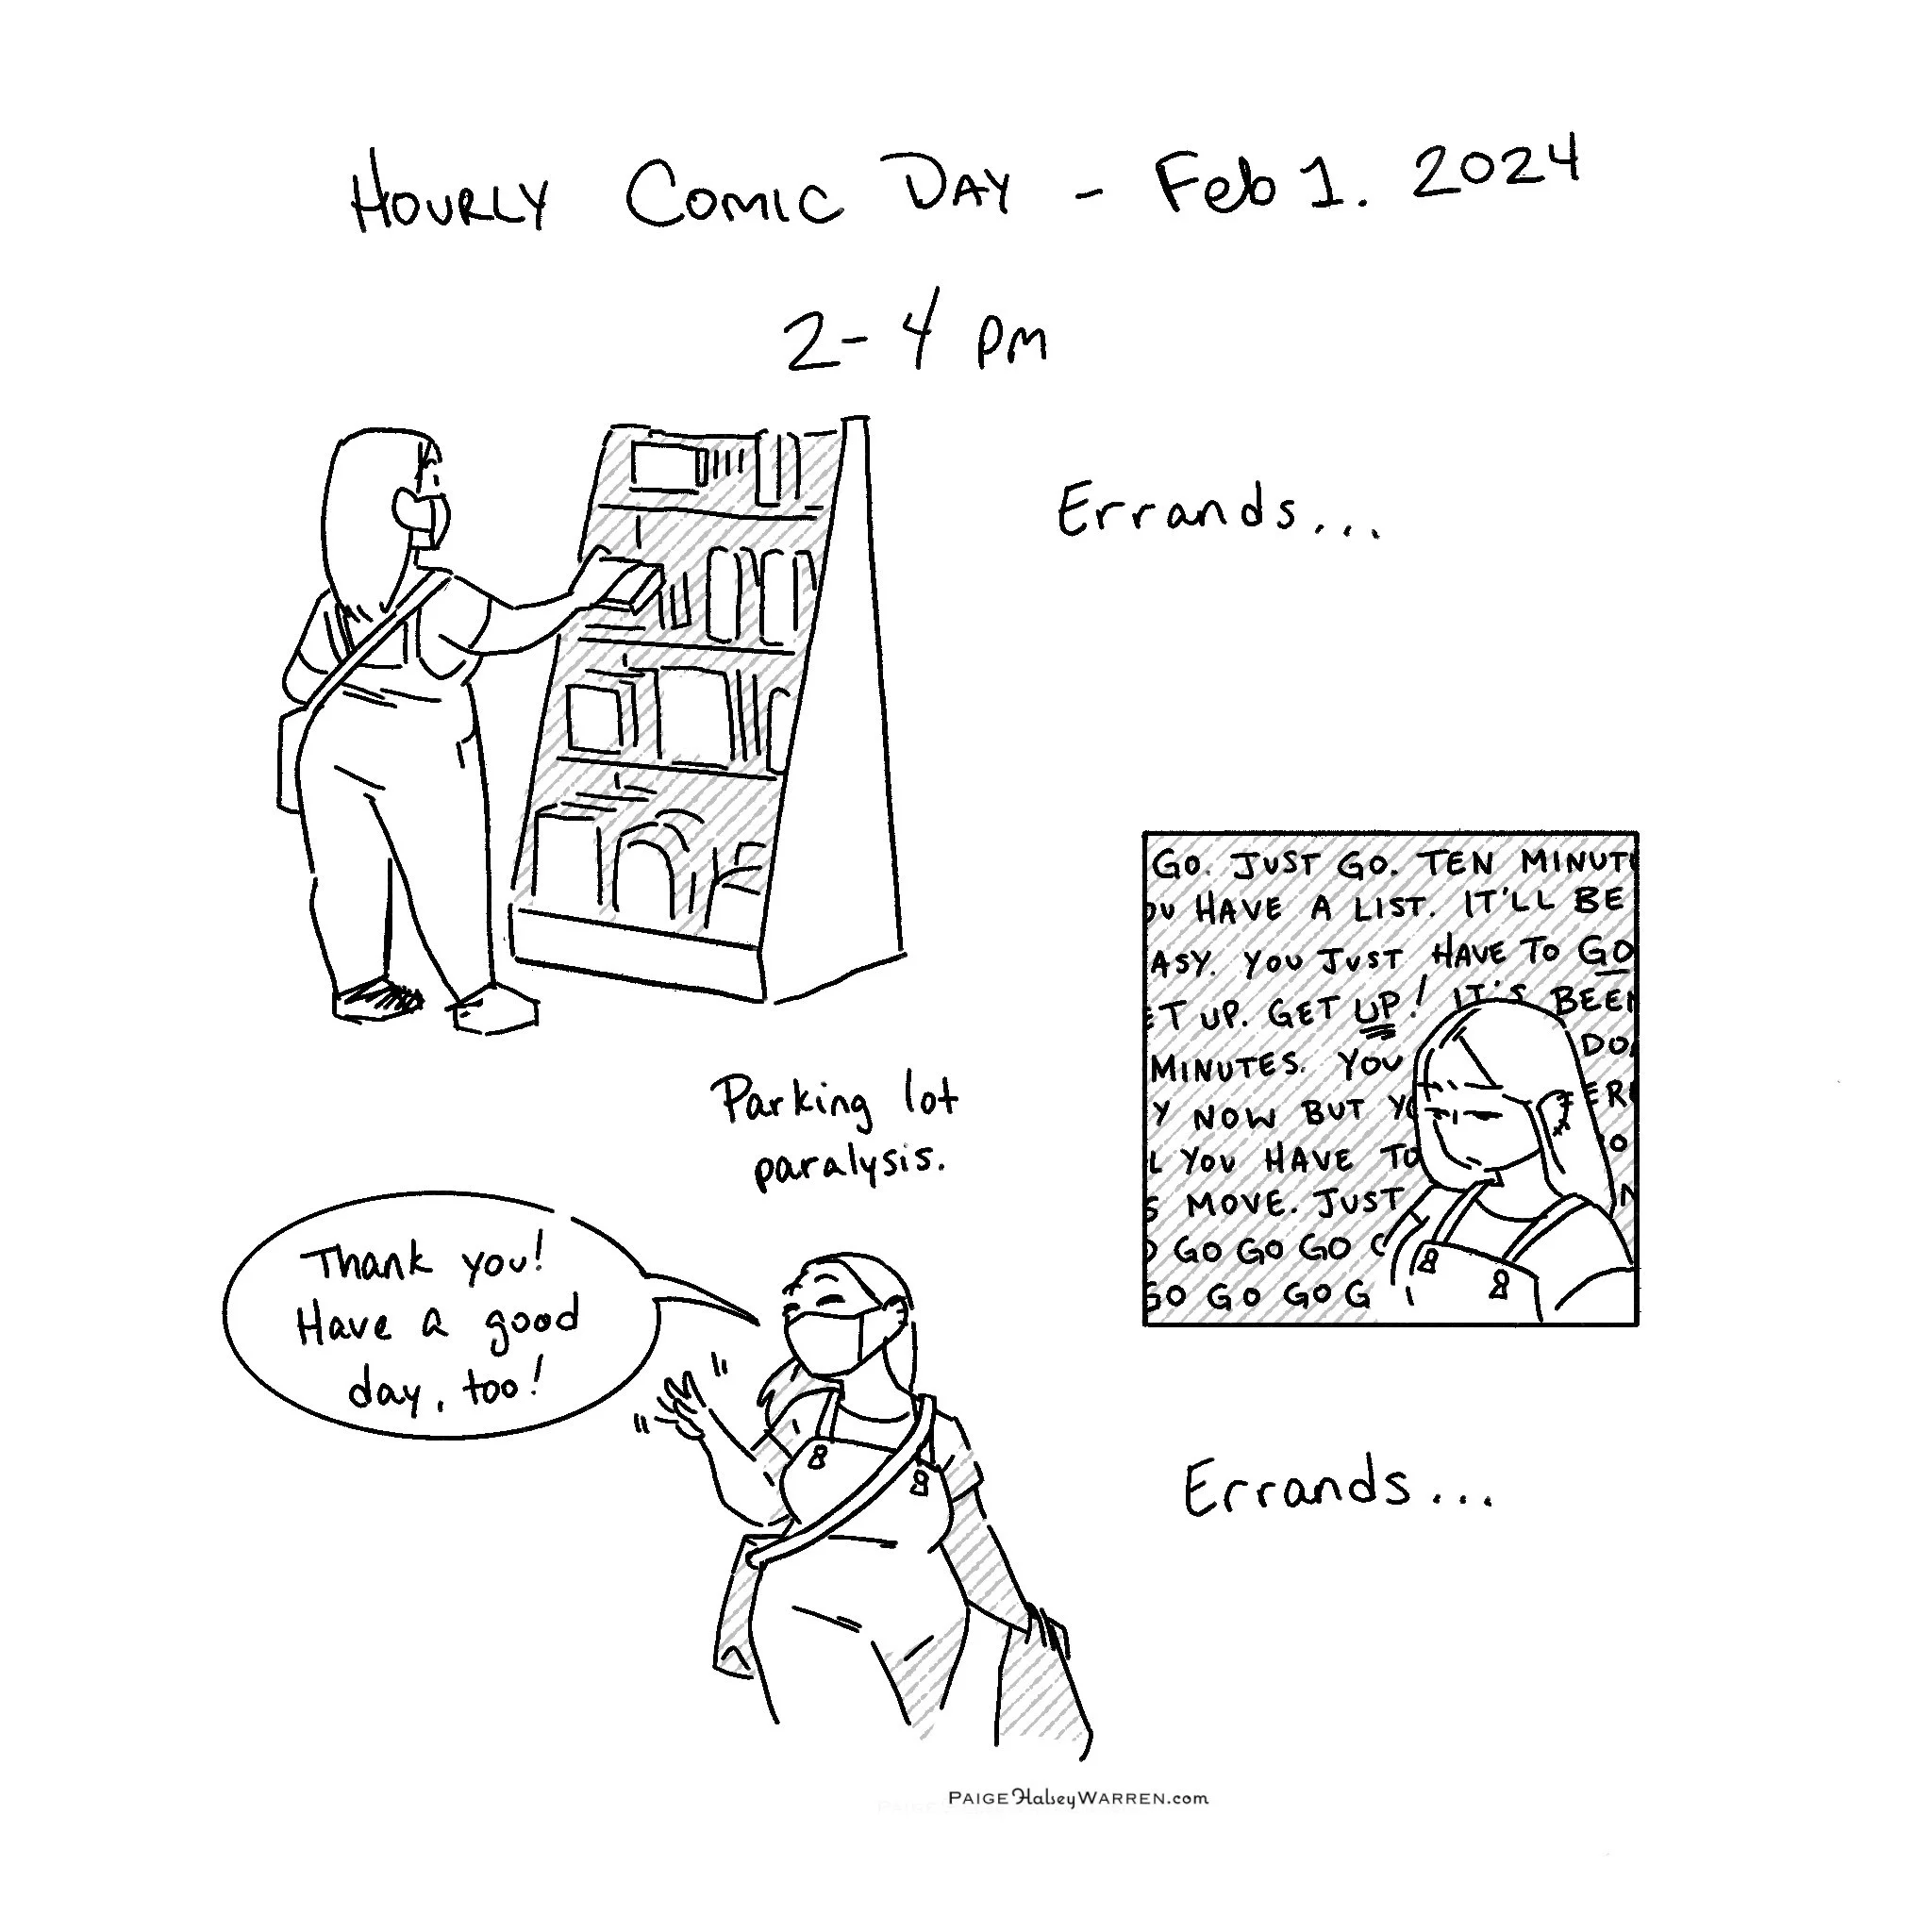 HOURLY COMIC DAY - Feb 1. 2024
2-4 pm
Errands...
Parking lot
paralysis.
GO. JUST GO. TEN MINUT
OU HAVE A LIST. IT'LL BE
ASY. YOU JUST HAVE TO GO
ET UP. GET UP! IT'S BEE
MINUTES. YOU DO
Y NOW BUT Y ER
L YOU HAVE TO O
S MOVE. JUST N
O GO GO GO G
GO GO GO G
Thank you!
Have a good
day, too!
Errands...
PAIGE Halsey WARREN.com